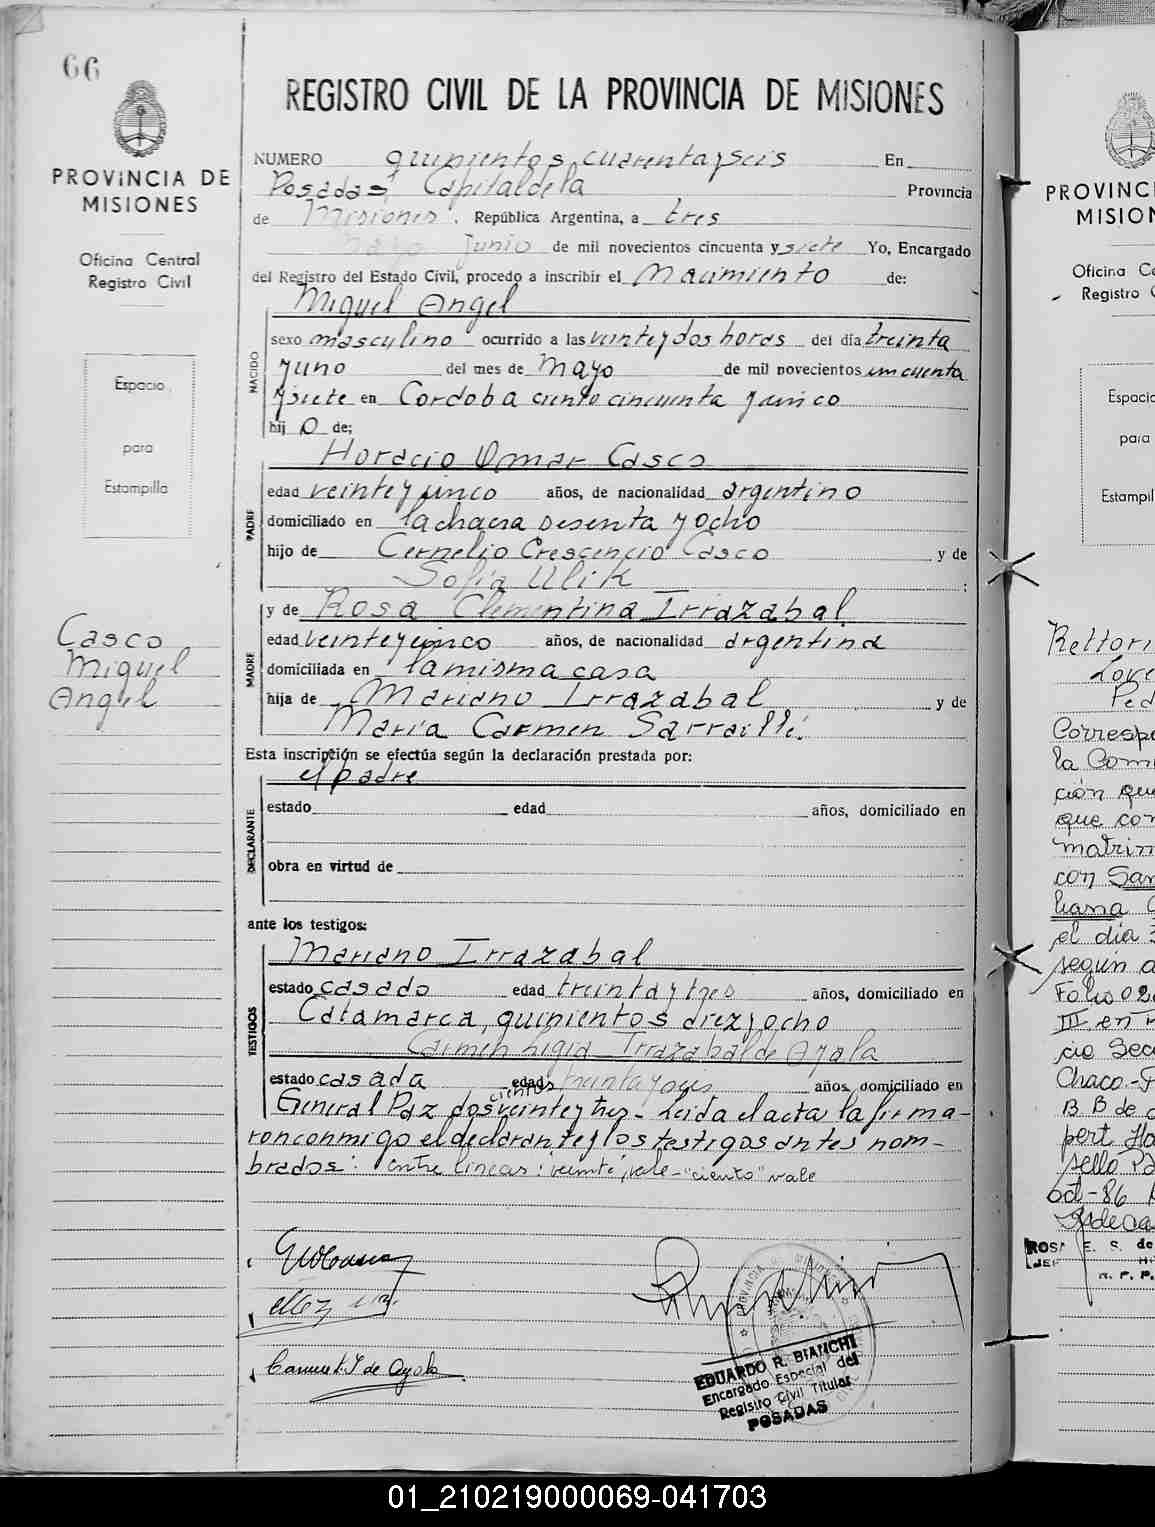 66
PROVINCIA DE
MISIONES
Oficina Central
Registro Civil
Espacio
para
Estampilla
Casco
Miguel
Angel
REGISTRO CIVIL DE LA PROVINCIA DE MISIONES
NUMERO quinientos cuarenta y seis En
Posadas, Capital de la Provincia
de Misiones. República Argentina, a tres
Junio de mil novecientos cincuenta y siete Yo, Encargado
del Registro del Estado Civil, procedo a inscribir el Nacimiento de:
Miguel Angel
NACIDO
sexo masculino ocurrido a las veinte y dos horas del día treinta
y uno del mes de Mayo de mil novecientos cincuenta
y siete en Cordoba ciento cincuenta y cinco
hij o de:
Horacio Omar Casco
PADRE
edad veinte y cinco años, de nacionalidad argentino
domiciliado en la chacra sesenta y ocho
hijo de Cornelio Crescencio Casco y de
Sofia Ulik ;
y de Rosa Clementina Irrazabal
MADRE
edad veinte y cinco años, de nacionalidad argentina
domiciliada en la misma casa
hija de Mariano Irrazabal y de
María Carmen Sarraillé.
Esta inscripción se efectúa según la declaración prestada por:
el padre
DECLARANTE
estado edad años, domiciliado en
obra en virtud de
ante los testigos:
Mariano Irrazabal
TESTIGOS
estado casado edad treinta y tres años, domiciliado en
Catamarca, quinientos diez y ocho
Carmen Ligia Irrazabal de Ayala
estado casada edad treinta y años, domiciliado en
cientos
General Paz dos veinte y tres - Leida el acta la firma-
ron conmigo el declarante y los testigos antes nom-
brados: entre lineas: vale - "ciento" vale
Carmen I. de Ayala
EDUARDO R. BIANCHI
Encargado Especial del
Registro Civil Titular
POSADAS
PROVINCI
MISION
Oficina Ce
Registro C
Espacio
para
Estampil
Rettori
Love
Ped
Corresp
la Com
ción que
que con
matrim
con San
liana
el dia 3
según a
Folio 02
III en
cio Sec
Chaco.-
B B de
pert. Ho
sello Po
oct-86
ROSA E. S. de
JEF
R. P. P.
01_210219000069-041703